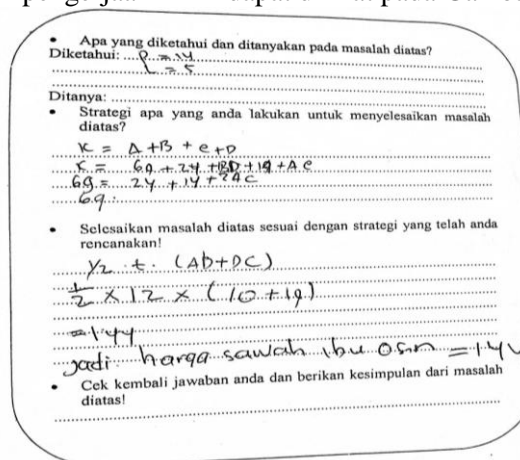 • Apa yang diketahui dan ditanyakan pada masalah diatas?
Diketahui: P = 14
L = 5
Ditanya:
• Strategi apa yang anda lakukan untuk menyelesaikan masalah
diatas?
K = A + B + e + D
K = 69 + 24 + BD + 19 + A C
69 = 24 + 14 + 2AC
69.
• Selesaikan masalah diatas sesuai dengan strategi yang telah anda
rencanakan!
1/2 t. (AD+DC)
1/2 × 12 × (10 + 19)
= 144
Jadi harga sawah ibu = 14
• Cek kembali jawaban anda dan berikan kesimpulan dari masalah
diatas!